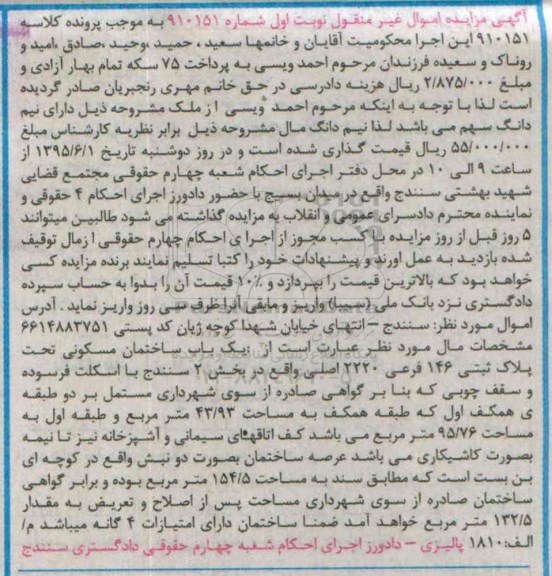 آگهی مزایده اموال غیر منقول نوبت اول شماره ۹۱۰۱۵۱ به موجب پرونده کلاسه
۹۱۰۱۵۱ این اجرا محکومیت آقایان و خانمها سعید ، حمید ،وحید ،صادق ،امید و
روناک و سعیده فرزندان مرحوم احمد ویسی به پرداخت ۷۵ سکه تمام بهار آزادی و
مبلغ ۲/۸۷۵/۰۰۰ ریال هزینه دادرسی در حق خانم مهری رنجبریان صادر گردیده
است لذا با توجه به اینکه مرحوم احمد ویسی از ملک مشروحه ذیل دارای نیم
دانگ سهم می باشد لذا نیم دانگ مال مشروحه ذیل برابر نظریه کارشناس مبلغ
۵۵/۰۰۰/۰۰۰ ریال قیمت گذاری شده است و در روز دوشنبه تاریخ ۱۳۹۵/۶/۱ از
ساعت ۹ الی ۱۰ در محل دفتر اجرای احکام شعبه چهارم حقوقی مجتمع قضایی
شهید بهشتی سنندج واقع در میدان بسیج با حضور دادورز اجرای احکام ۴ حقوقی و
نماینده محترم دادسرای عمومی و انقلاب به مزایده گذاشته می شود طالبین میتوانند
۵ روز قبل از روز مزایده با کسب مجوز از اجرا ی احکام چهارم حقوقی ا زمال توقیف
شده بازدید به عمل اورند و پیشنهادات خود را کتبا تسلیم نمایند برنده مزایده کسی
خواهد بود که بالاترین قیمت را بپردازد و ۱۰٪ قیمت آن را بدوا به حساب سپرده
دادگستری نزد بانک ملی (سیبا) واریز و مابقی آنرا ظرف سی روز واریز نماید . آدرس
اموال مورد نظر: سنندج – انتهای خیابان شهدا کوچه ژیان کد پستی ۶۶۱۴۸۸۳۷۵۱
مشخصات مال مورد نظر عبارت است از یک باب ساختمان مسکونی تحت
پلاک ثبتی ۱۴۶ فرعی ۲۲۲۰ اصلی واقع در بخش ۲ سنندج با اسکلت فرسوده
و سقف چوبی که بنا بر گواهی صادره از سوی شهرداری مستمل بر دو طبقه
ی همکف اول که طبقه همکف به مساحت ۴۳/۹۳ متر مربع و طبقه اول به
مساحت ۹۵/۷۶ متر مربع می باشد کف اتاقهای سیمانی و آشپزخانه نیز تا نیمه
بصورت کاشیکاری می باشد عرصه ساختمان بصورت دو نبش واقع در کوچه ای
بن بست است که مطابق سند به مساحت ۱۵۴/۵ متر مربع بوده و برابر گواهی
ساختمان صادره از سوی شهرداری مساحت پس از اصلاح و تعریض به مقدار
۱۳۲/۵ متر مربع خواهد آمد ضمنا ساختمان دارای امتیازات ۴ گانه میباشد م/
الف:۱۸۱۰ پالیزی – دادورز اجرای احکام شعبه چهارم حقوقی دادگستری سنندج